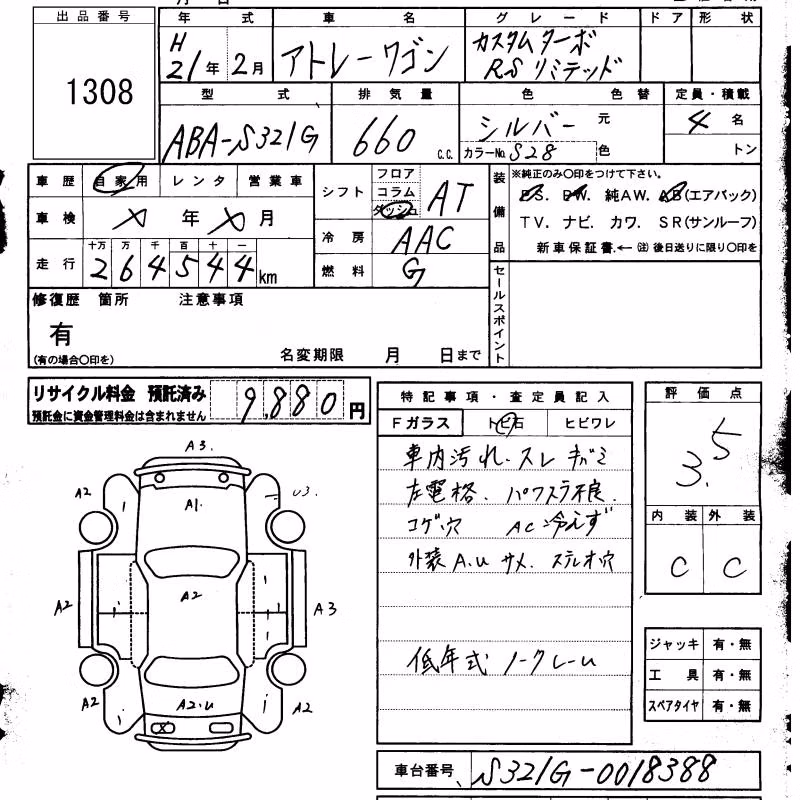 出品番号
1308
年式 車名 グレード ドア 形状
H21年2月 アトレーワゴン カスタムターボ RSリミテッド
型式 排気量 色 色替 定員・積載
ABA-S321G 660 c.c. シルバー 元色 4名
カラーNo. S28 トン
車歴 自家用 レンタ 営業車
車検 メ年メ月
走行 十万 万 千 百 十 一
264544km
シフト フロア コラム ダッシュ AT
冷房 AAC
燃料 G
装備品 ※純正のみ〇印をつけて下さい。
PS. PW. 純AW. AB(エアバック)
TV. ナビ. カワ. SR(サンルーフ)
新車保証書.← ㊟ 後日送りに限り〇印を
セールスポイント
修復歴 箇所 注意事項
有
(有の場合〇印を)
名変期限 月 日まで
リサイクル料金 預託済み
預託金に資金管理料金は含まれません
9,880円
特記事項・査定員記入
Fガラス トビ石 ヒビワレ
車内汚れ.スレ キズミ
左電格. パワスラ不良.
コゲ穴 AC 冷えず
外装 A.U サメ. ステレオ穴
低年式 ノークレーム
評価点
3.5
内装 外装
C C
ジャッキ 有・無
工具 有・無
スペアタイヤ 有・無
車台番号 S321G-0018388
A3.
A2
U3.
A1.
A2
A2
A3
A2
A2.U
A2